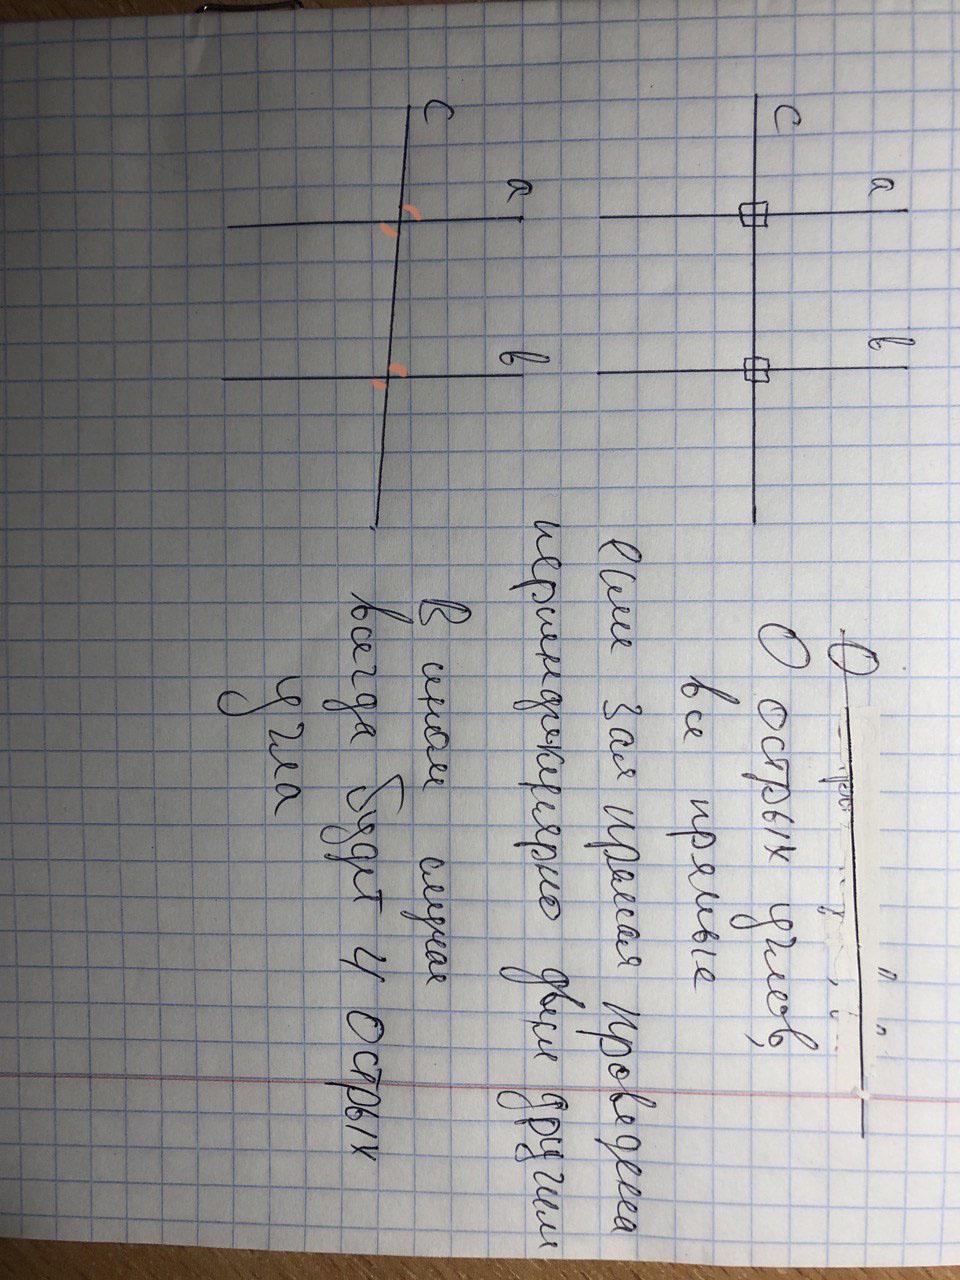 с
а
в
с
а
в
О
О острых углов,
все прямые
если 3ая прямая проведена
перпендикулярно двум другим
В ином случае
всегда будет 4 острых
угла